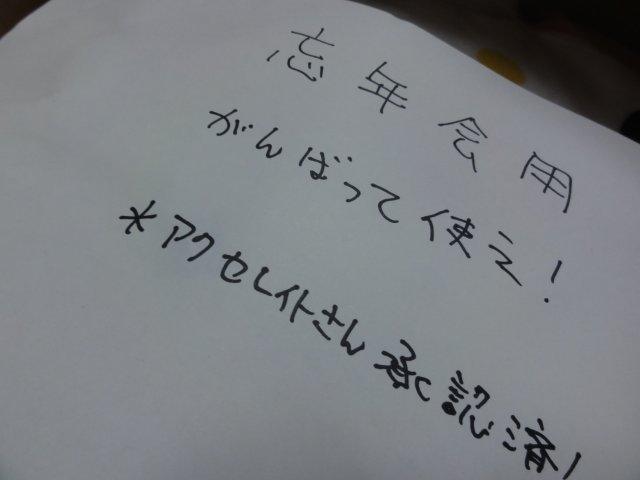 忘年会用
がんばって使え!
*アクセレイトさん承認済!